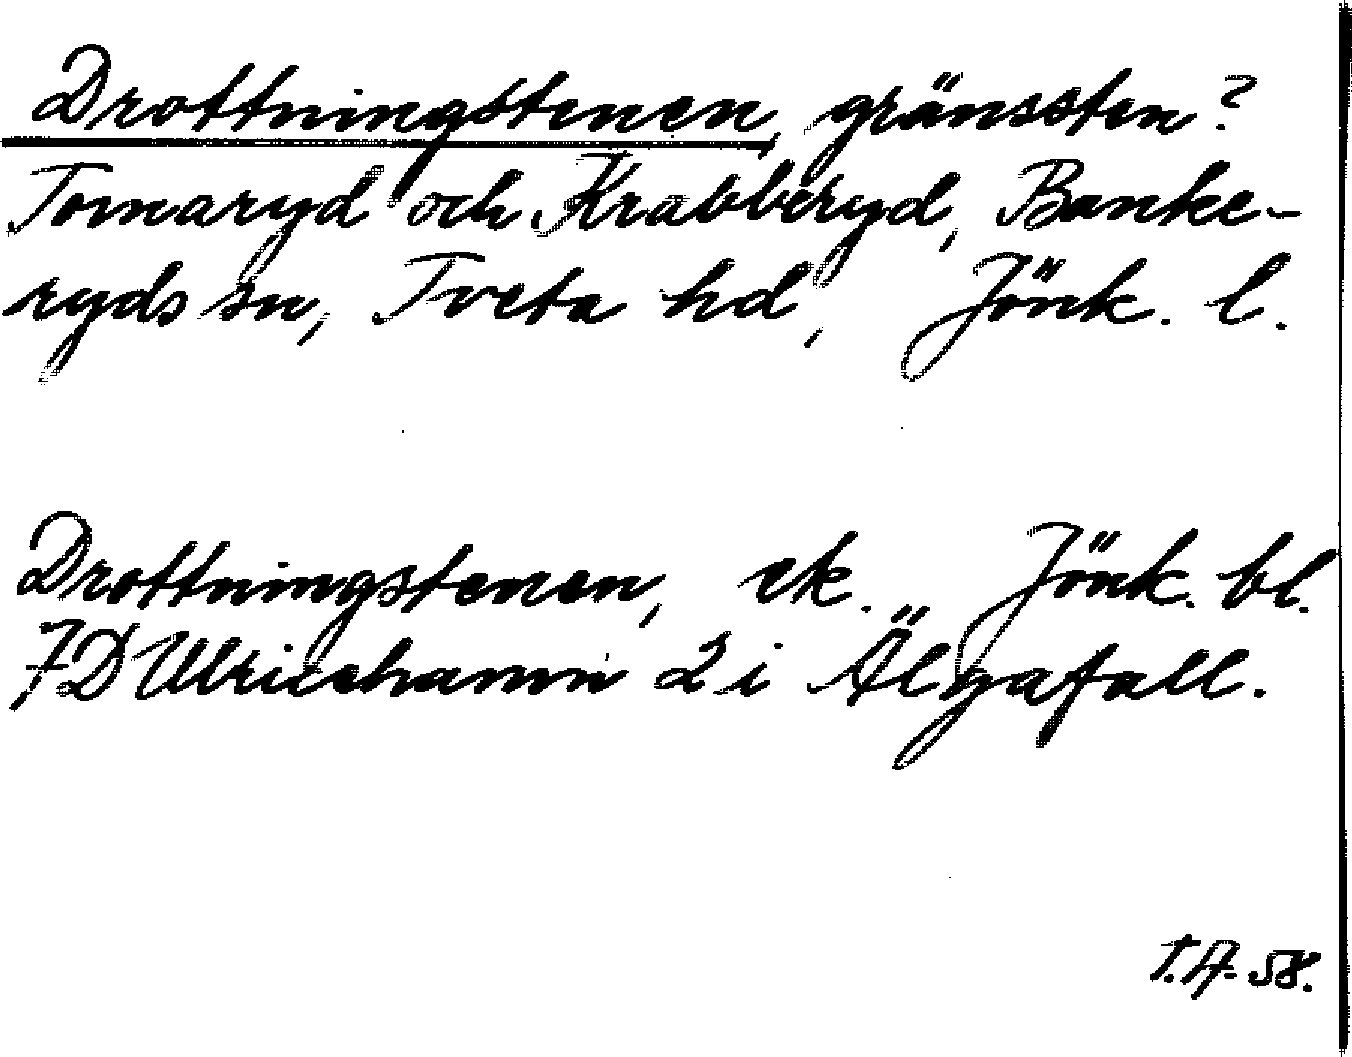 Drottningstenen, gränssten?
Tomaryd och Krabberyd, Banke-
ryds sn, Tveta hd, Jönk. l.
Drottningstenen, ek. Jönk. bl.
7D Ulricehamn 2 i Älgafall.
T.A. 58.